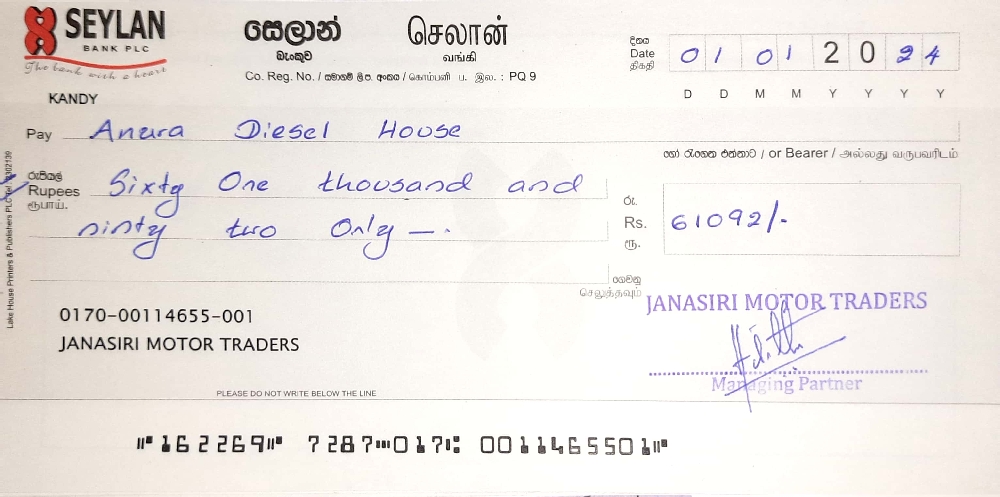 SEYLAN
BANK PLC
The bank with a heart
සෙලාන්
බැංකුව
செலான்
வங்கி
Co. Reg. No. / සමාගම් ලි.ප. අංකය / கொம்பனி ப. இல. : PQ 9
දිනය
Date
திகதி
0 1 0 1 2 0 2 4
D D M M Y Y Y Y
KANDY
Pay Anura Diesel House
හෝ රැගෙන එන්නාට / or Bearer / அல்லது வருபவரிடம்
රුපියල්
Rupees
ரூபாய்.
Sixty One thousand and
ninty two Only —.
රු.
Rs.
ரூ.
61092/-
ගෙවනු
செலுத்தவும்
0170-00114655-001
JANASIRI MOTOR TRADERS
JANASIRI MOTOR TRADERS
Managing Partner
PLEASE DO NOT WRITE BELOW THE LINE
⑈162269⑈ 7287⑉017⑆ 0011465501⑈
Lake House Printers & Publishers PLC